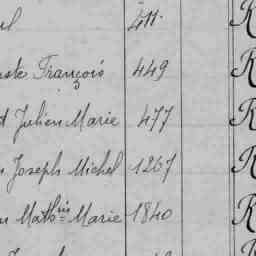 411. R
François 449 R
Julien Marie 477 R
Joseph Michel 1267 R
Mathin Marie 1840 R